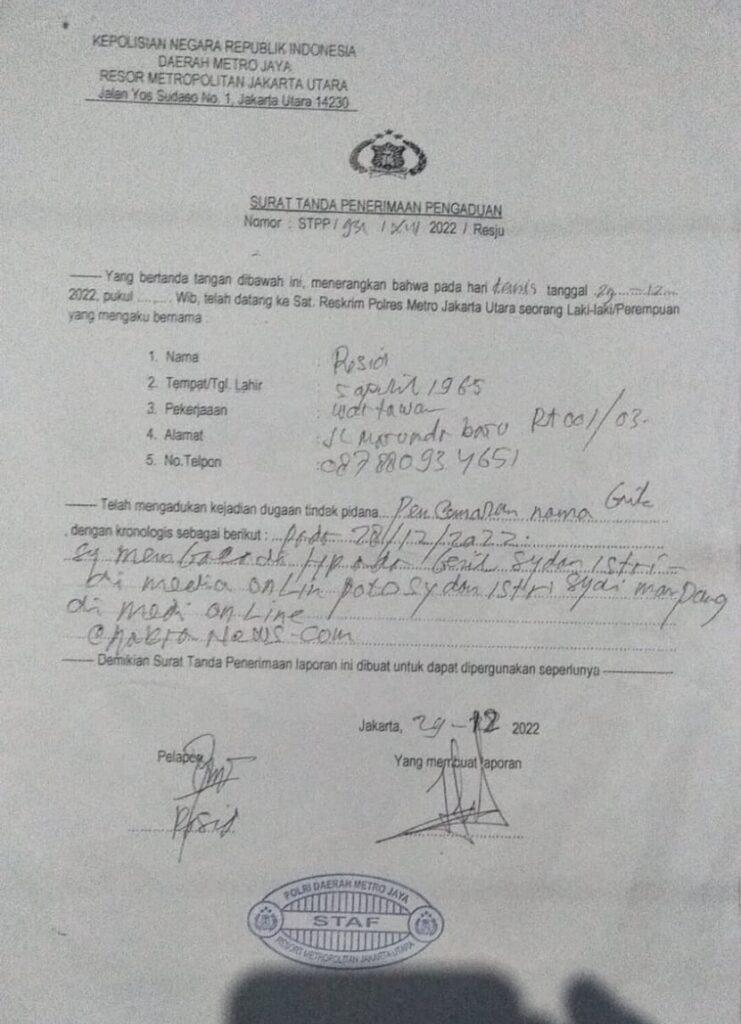 KEPOLISIAN NEGARA REPUBLIK INDONESIA
DAERAH METRO JAYA
RESOR METROPOLITAN JAKARTA UTARA
Jalan Yos Sudaso No. 1, Jakarta Utara 14230
SURAT TANDA PENERIMAAN PENGADUAN
Nomor : STPP / / XII 2022 / Resju
Yang bertanda tangan dibawah ini, menerangkan bahwa pada hari kamis tanggal 29 - 12
2022, pukul ........ Wib, telah datang ke Sat. Reskrim Polres Metro Jakarta Utara seorang Laki-laki/Perempuan
yang mengaku bernama :
1. Nama : Rosid
2. Tempat/Tgl. Lahir : 5 april 1965
3. Pekerjaaan : wartawan
4. Alamat : JL Marunda baru RT 001/03.
5. No.Telpon : 087880934651
Telah mengadukan kejadian dugaan tindek pidana... Pencemaran nama
, dengan kronologis sebagai berikut : Pada 28/12/2022.
sy Hp sy dan istri -
di media onLine poto sy dan istri
di onLine
News.com
Demikian Surat Tanda Penerimaan laporan ini dibuat untuk dapat dipergunakan seperlunya
Jakarta, 29-12 2022
Pelapor Yang membuat laporan
Rosid
POLRI DAERAH METRO JAYA
STAF
RESORT METROPOLITAN JAKARTA UTARA